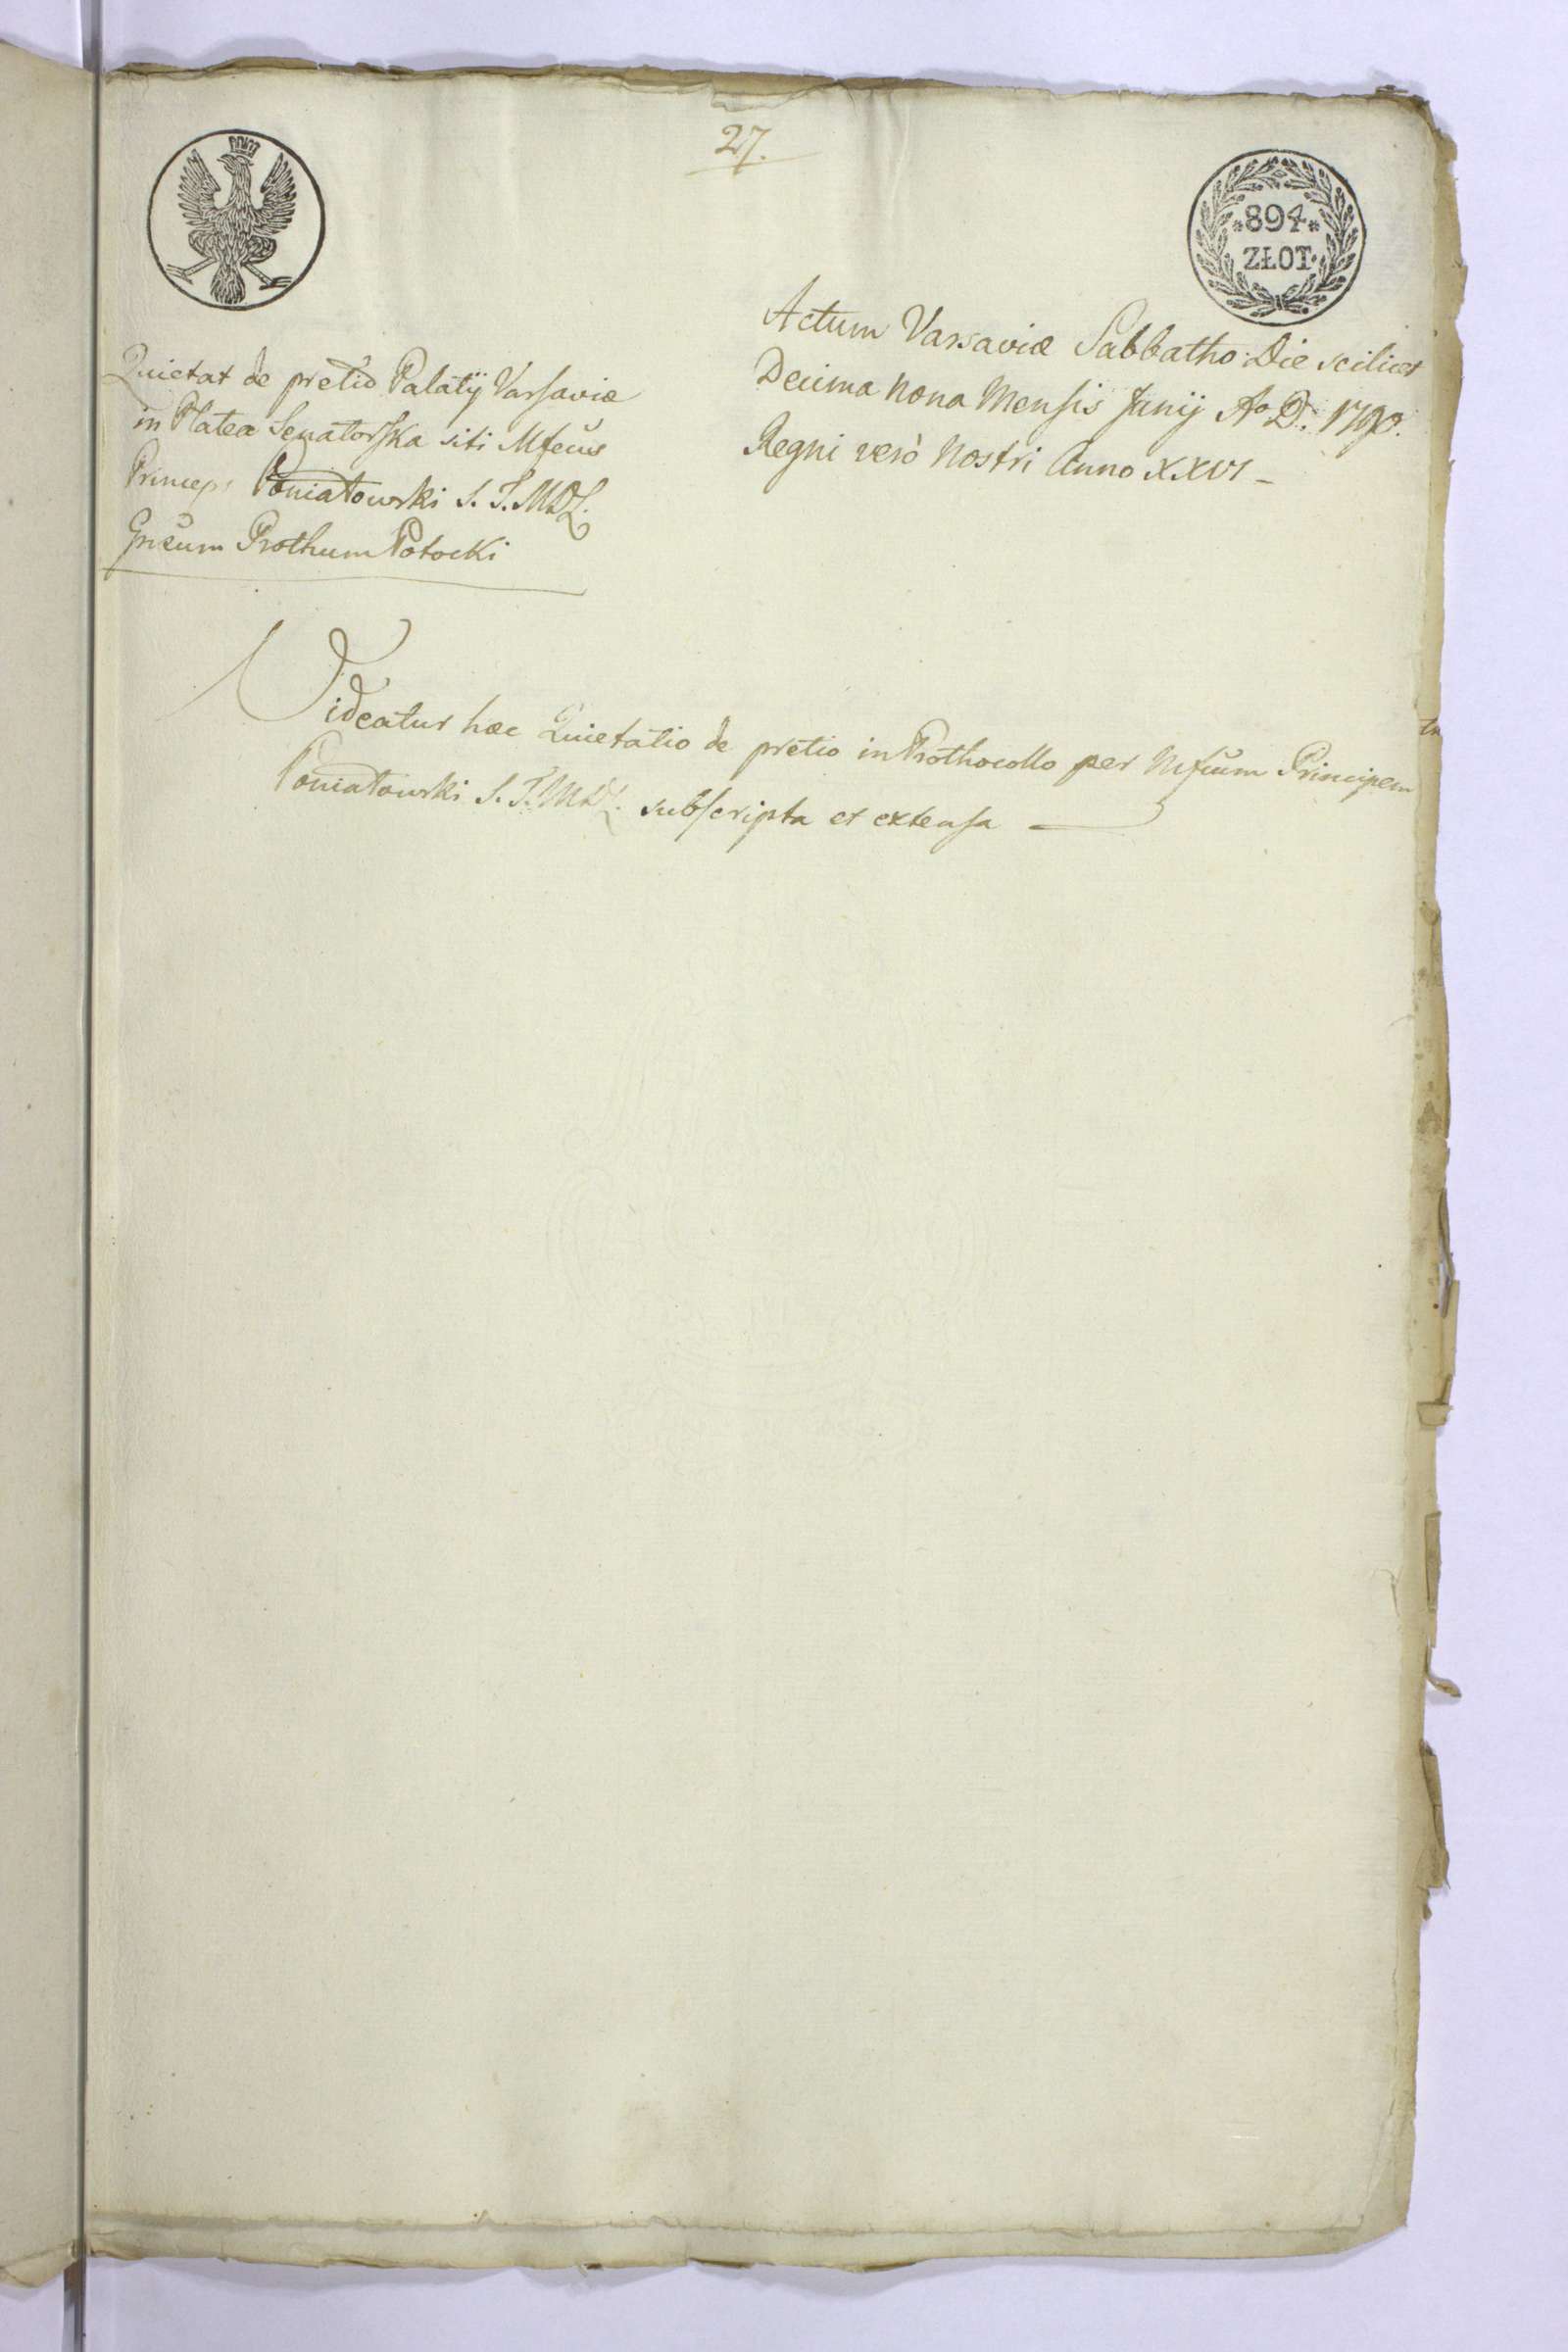 27.
*894*
ZŁOT.
Actum Varsaviæ Sabbatho Die scilicet
Decima Nona Mensis Junij Ao D: 1790.
Regni verò Nostri Anno XXVI –
Quietat de pretio Palatij Varsaviæ
in Platea Senatorska siti Mfcus
Princeps Poniatowski S. T. MDL.
Gncum Prothum Potocki
Videatur hæc Quietatio de pretio in Prothocollo per Mfcum Principem
Poniatowski S. T. MDL. subscripta et extensa —